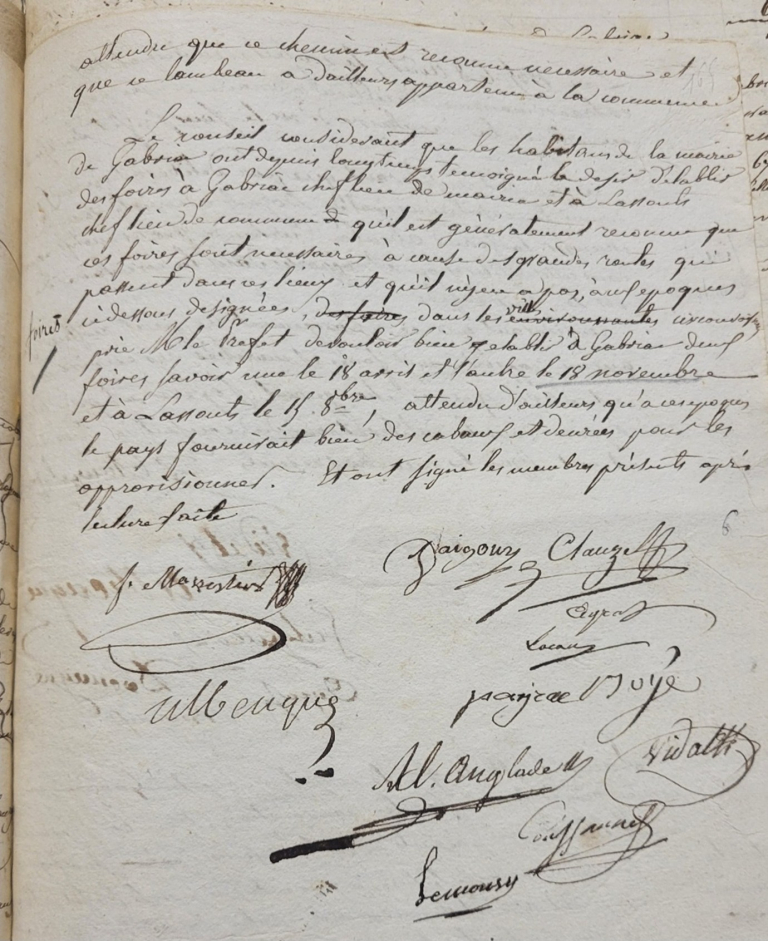 attendu que ce chemin est reconnu necessaire et
que ce lambeau a d'ailleurs appartenu à la commune
Le conseil considerant que les habitans de la mairie
de Gabriac ont depuis longtemps temoigné le desir d'etablir
des foires à Gabriac chef lieu de mairie et à Lassouts
chef lieu de commune qu'il est généralement reconnu que
ces foires sont necessaires à cause des grandes routes qui
passent dans ces lieux et qu'il n'y en a pas, aux epoques
foires
ci dessous designées, des foires dans les villes environnantes circonvoisines
prie M. le Prefet de vouloir bien y etablir à Gabriac deux
foires savoir une le 18 avril et l'autre le 18 novembre
et à Lassouts le 15. 8bre, attendu d'ailleurs qu'à ces epoques
le pays fournirait bien des cabaux et denrées pour les
approvisionner. Et ont signé les membres présents après
lecture faite
Clauzel
Ayral
Boyé
Al. Anglade
Vidal